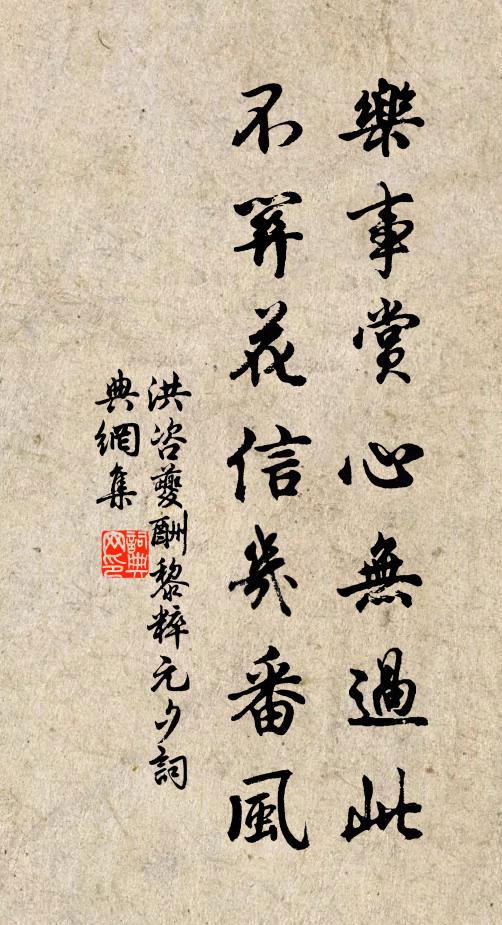 樂事賞心無過此
不算花信幾番風
洪咨夔酬黎粹元夕詞
典網集
詞典網印